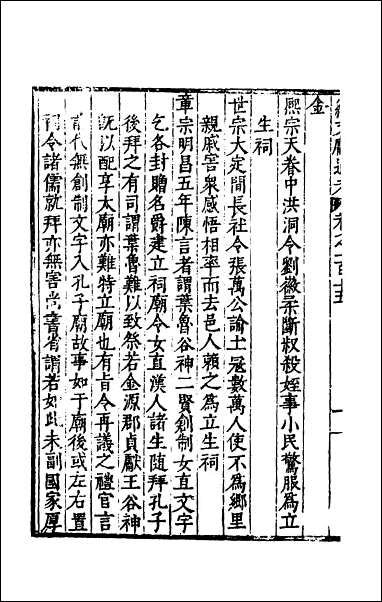 金
熙宗天眷中洪洞令劉徽柔斷叔殺姪事小民驚服為立
生祠
世宗大定間長社令張萬公諭土冦數萬人使不為鄉里
親戚害衆感悟相率而去邑人賴之為立生祠
章宗明昌五年陳言者謂葉魯谷神二賢創制女直文字
乞各封贈名爵建立祠廟令女直漢人諸生隨拜孔子
後拜之有司謂葉魯難以致祭若金源郡貞獻王谷神
既以配享太廟亦難特立廟也有㫖令再議之禮官言
前代無創制文字入孔子廟故事如于廟後或左右置
祠令諸儒就拜亦無害尚書省謂若如此未副國家厚